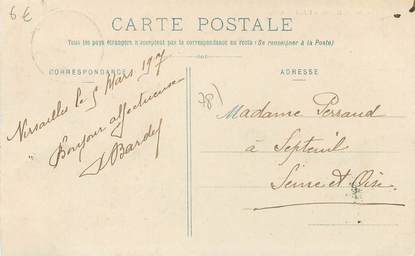 6€
CARTE POSTALE
Tous les pays étrangers n'acceptent pas la correspondance au recto (Se renseigner à la Poste)
CORRESPONDANCE
ADRESSE
Versailles le 5 Mars 1907
Bonjour affectueux
Bardel
78)
Madame Perraud
à Septeuil
Seine et Oise